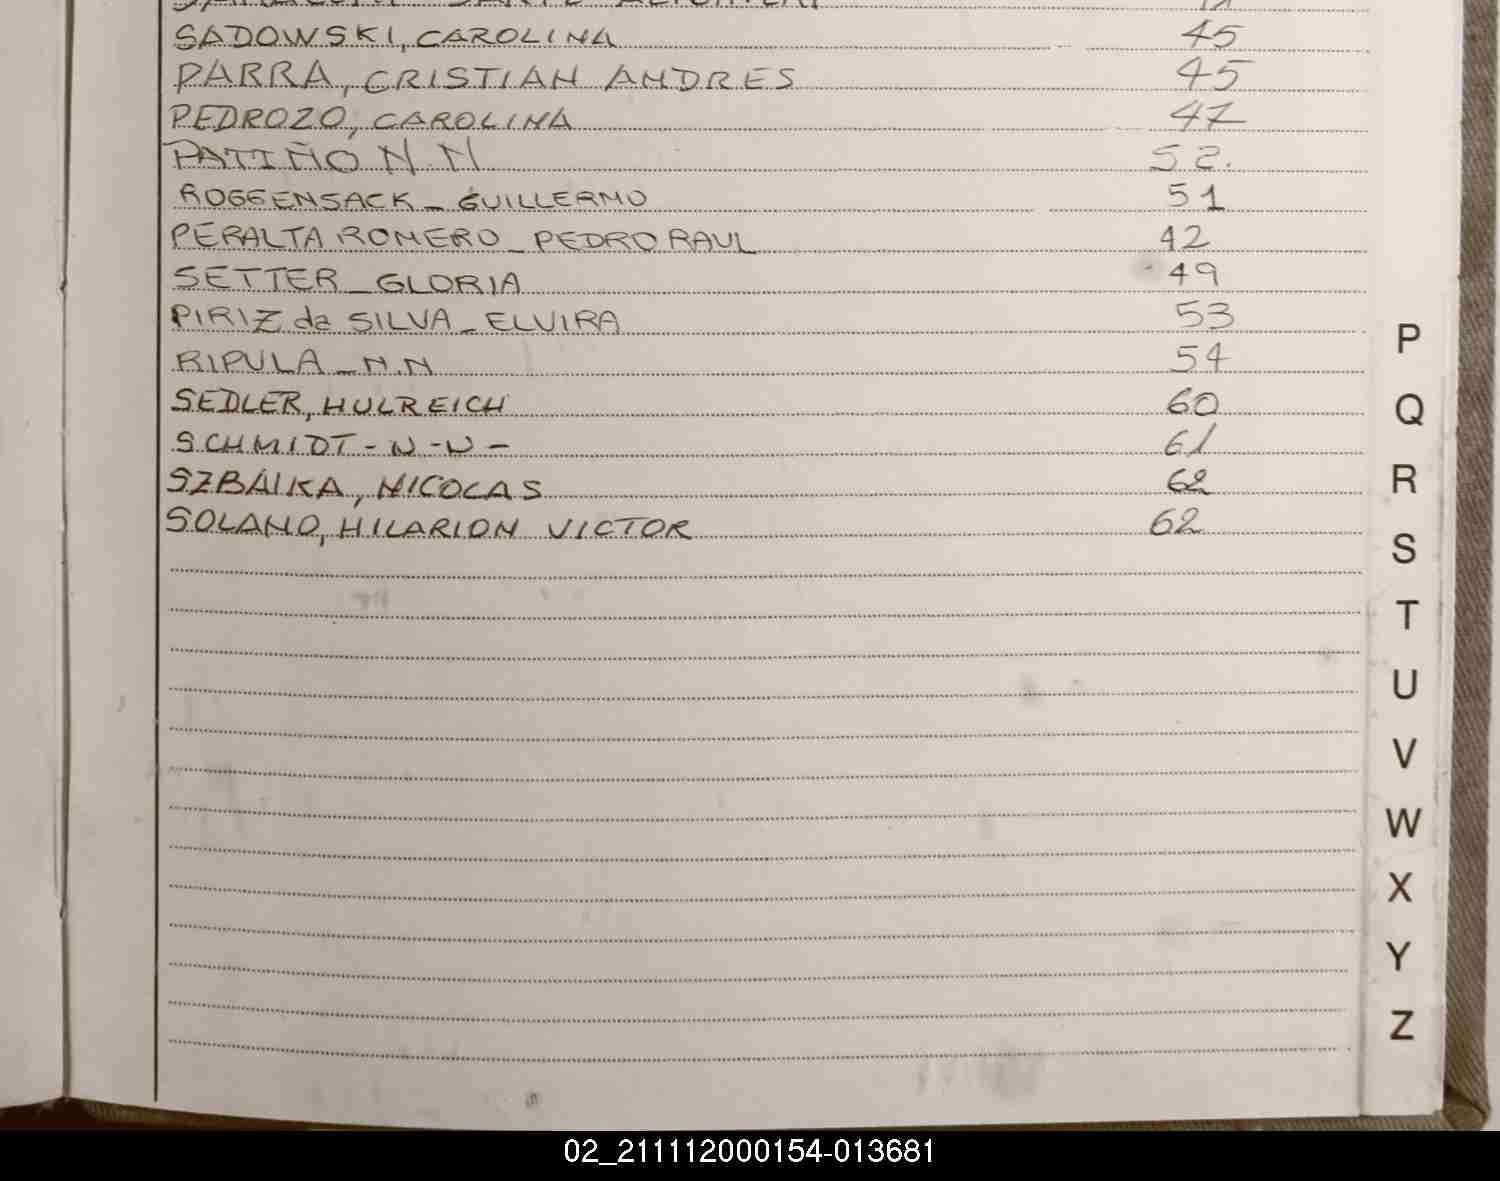 SADOWSKI, CAROLINA 45
PARRA, CRISTIAN ANDRES 45
PEDROZO, CAROLINA 47
PATIÑO N.N 52.
ROGGENSACK_GUILLERMO 51
PERALTA ROMERO_PEDRO RAUL 42
SETTER_GLORIA 49
PIRIZ da SILVA_ELVIRA 53
RIPULA_N.N 54
SEDLER, HULREICH 60
SCHMIDT-N-N- 61
SZBAIKA, NICOLAS 62
SOLANO, HILARION VICTOR 62
P
Q
R
S
T
U
V
W
X
Y
Z
02_211112000154-013681